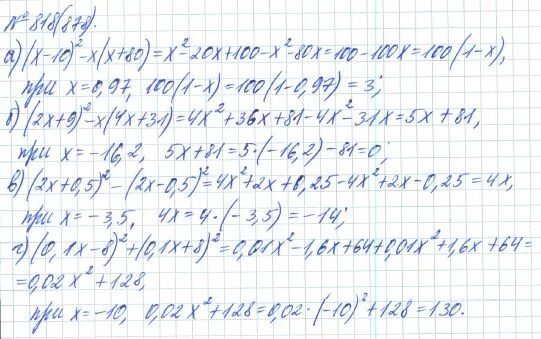 № 818(878).
а) (x-10)²-x(x+80)=x²-20x+100-x²-80x=100-100x=100(1-x),
при x=0,97, 100(1-x)=100(1-0,97)=3;
б) (2x+9)²-x(4x+31)=4x²+36x+81-4x²-31x=5x+81,
при x=-16,2, 5x+81=5·(-16,2)-81=0;
в) (2x+0,5)²-(2x-0,5)²=4x²+2x+0,25-4x²+2x-0,25=4x,
при x=-3,5, 4x=4·(-3,5)=-14;
г) (0,1x-8)²+(0,1x+8)²=0,01x²-1,6x+64+0,01x²+1,6x+64=
=0,02x²+128,
при x=-10, 0,02x²+128=0,02·(-10)²+128=130.